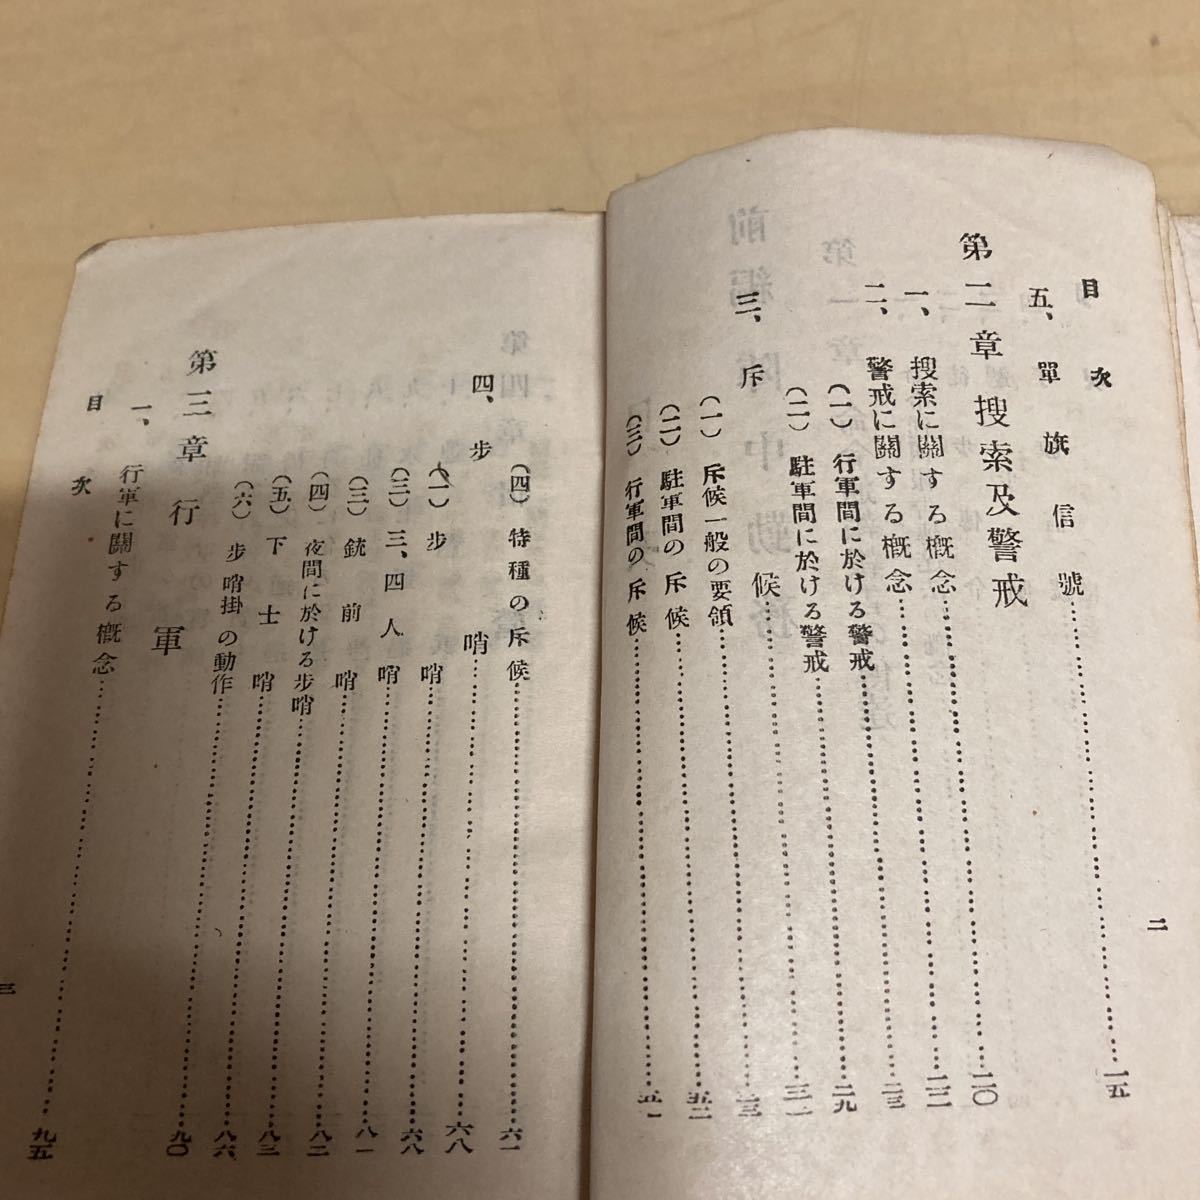 目次
二
五、單旗信號……一五
第二章 搜索及警戒
一、搜索に關する概念……二〇
二、警戒に關する概念……二二
(一) 行軍間に於ける警戒……二三
(二) 駐軍間に於ける警戒……二九
三、斥候……三一
(一) 斥候一般の要領……三三
(二) 駐軍間の斥候……
(三) 行軍間の斥候……
(四) 特種の斥候……六一
四、步哨……六八
(一) 步哨……六八
(二) 三、四人哨……八一
(三) 銃前哨……八二
(四) 夜間に於ける步哨……八三
(五) 下士哨……八六
(六) 步哨掛の動作……九〇
第三章 行軍
一、行軍に關する概念……九五
目次
三